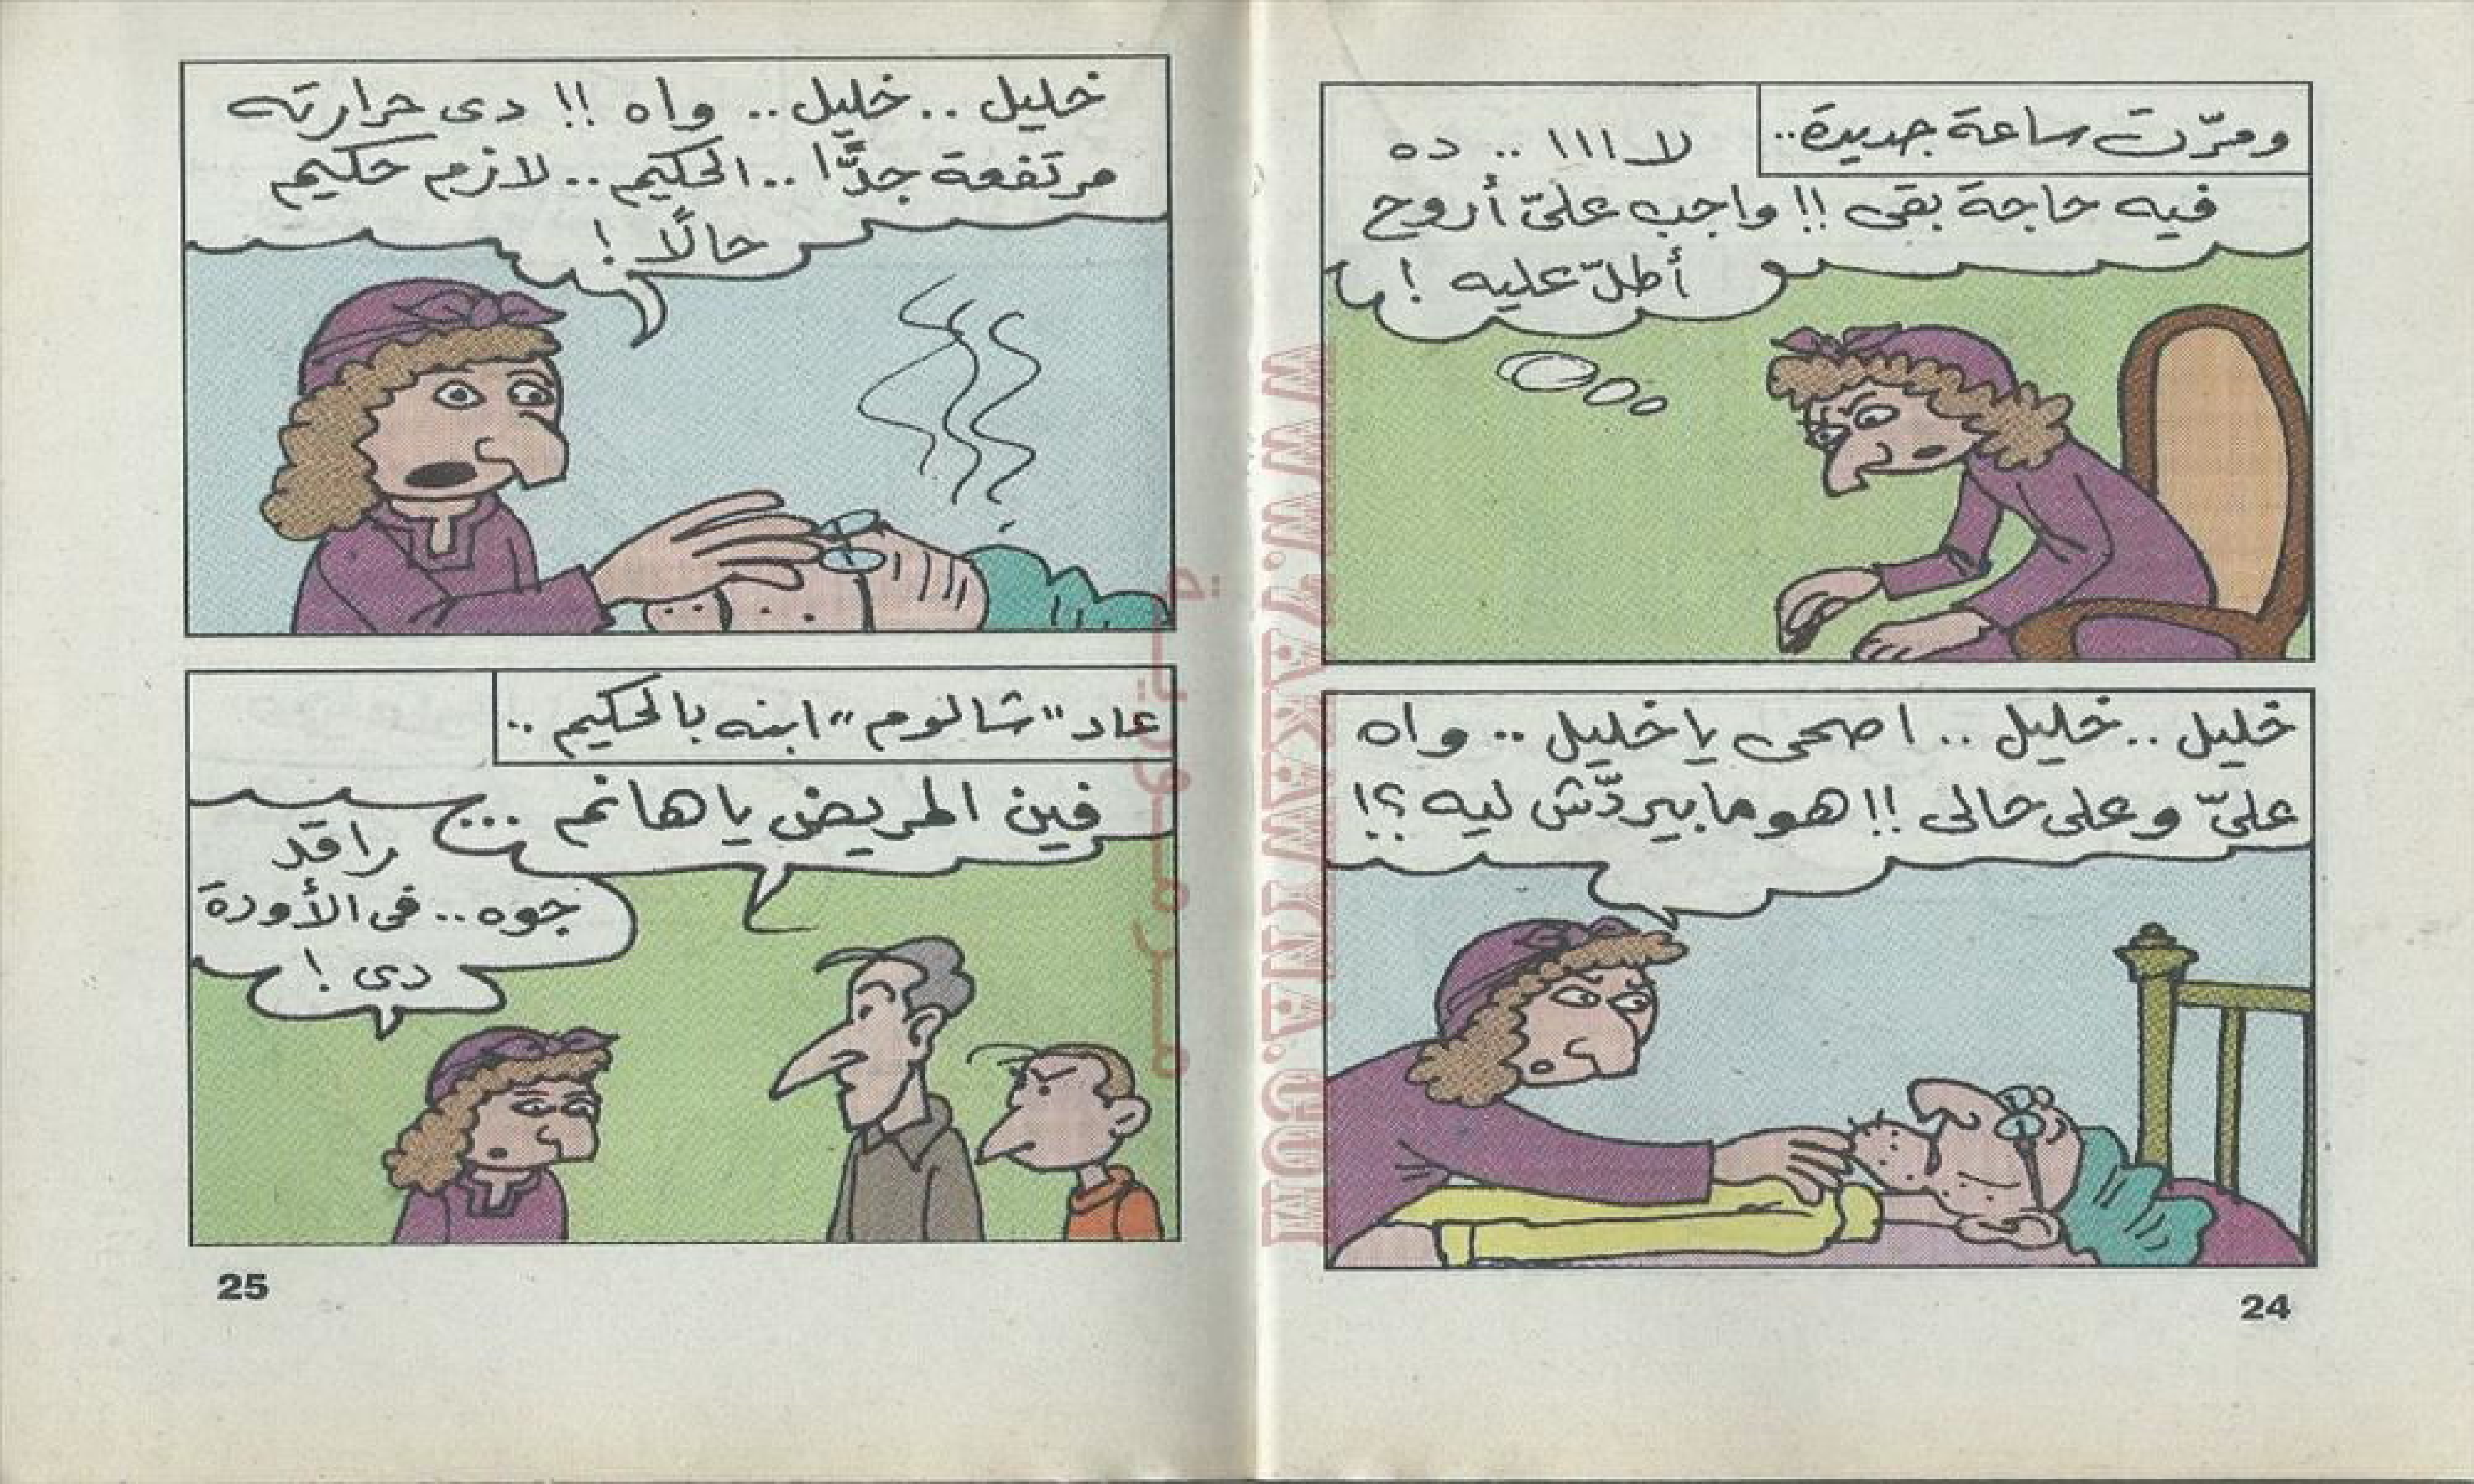 ومرّت ساعة جديدة..
لاااا .. ده
فيه حاجة بقى !! واجب علىّ أروح
أطلّ عليه !
خليل .. خليل .. اصحى يا خليل .. واه
علىّ وعلى حالى !! هو ما بيردّش ليه ؟!
24
خليل .. خليل .. واه !! دى حرارته
مرتفعة جدًّا .. الحكيم .. لازم حكيم
حالًا !
عاد "شالوم" ابنه بالحكيم ..
فين المريض يا هانم ...
راقد
جوه .. فى الأودة
دى !
25